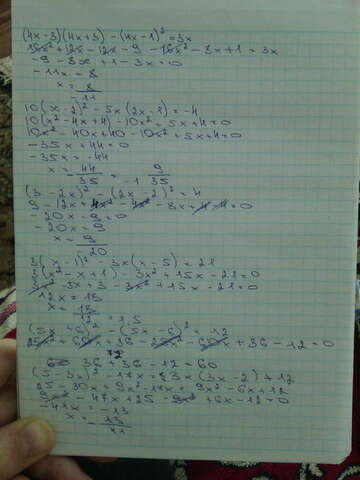 (4x-3)(4x+3) - (4x-1)² = 3x
16x² + 12x - 12x - 9 - 16x² - 8x + 1 = 3x
-9 - 8x + 1 - 3x = 0
-11x = 8
x = 8/-11
10(x-2)² - 5x(2x-1) = -4
10(x² - 4x + 4) - 10x² + 5x + 4 = 0
10x² - 40x + 40 - 10x² + 5x + 4 = 0
-35x + 44 = 0
-35x = -44
x = 44/35 = -1 9/35
(3-2x)² - (2x-2)² = 4
9 - 12x + 4x² - 4x² - 8x + 4 - 4 = 0
-20x - 9 = 0
-20x = 9
x = 9/20
3(x-1)² - 3x(x-5) = 21
3(x² - x + 1) - 3x² + 15x - 21 = 0
3x² - 3x + 3 - 3x² + 15x - 21 = 0
12x = 18
x = 18/12 = 1.5
(5x+6)² - (5x-6)² = 12
25x² + 60x + 36 - 25x² - 60x + 36 - 12 = 0
72
60 36 + 36 - 12 = 60
(5-3x)² - 17x = 3x(3x-2) + 12
25 - 30x + 9x² - 17x = 9x² - 6x + 12
9x² - 47x + 25 - 9x² + 6x - 12 = 0
-41x = -13
x = -13/41